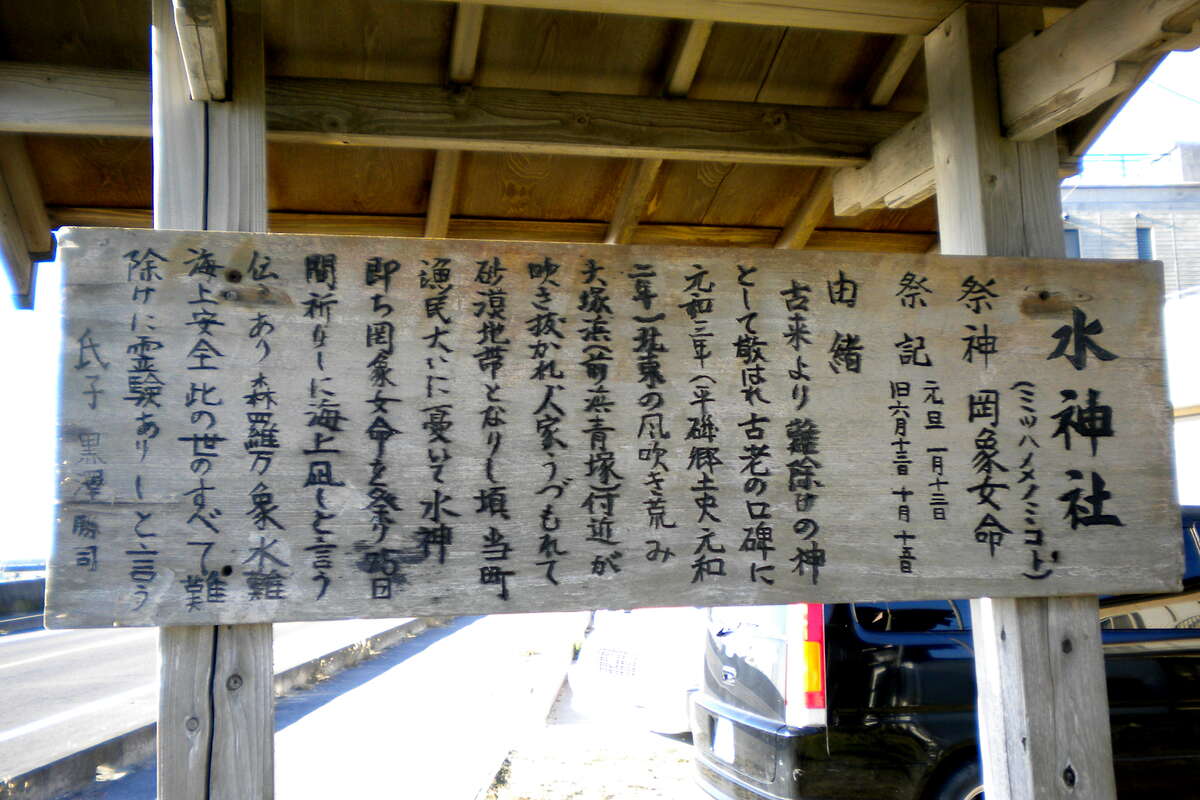 水神社
(ミツハノメノミコト)
祭神 罔象女命
祭記 元旦 一月十三日
旧六月十三日 十月十五日
由緒
古来より難除けの神
として敬はれ古老の口碑に
元和三年(平磯郷土史元和
二年)北東の風吹き荒み
大塚浜(前浜青塚)付近が
吹き抜かれ人家うづもれて
砂漠地帯となりし頃当町
漁民大いに憂いて水神
即ち罔象女命を祭り
間祈りしに海上凪しと言う
伝えあり森羅万象水難
海上安全此の世のすべて難
除けに霊験ありしと言う
氏子 黒澤勝司